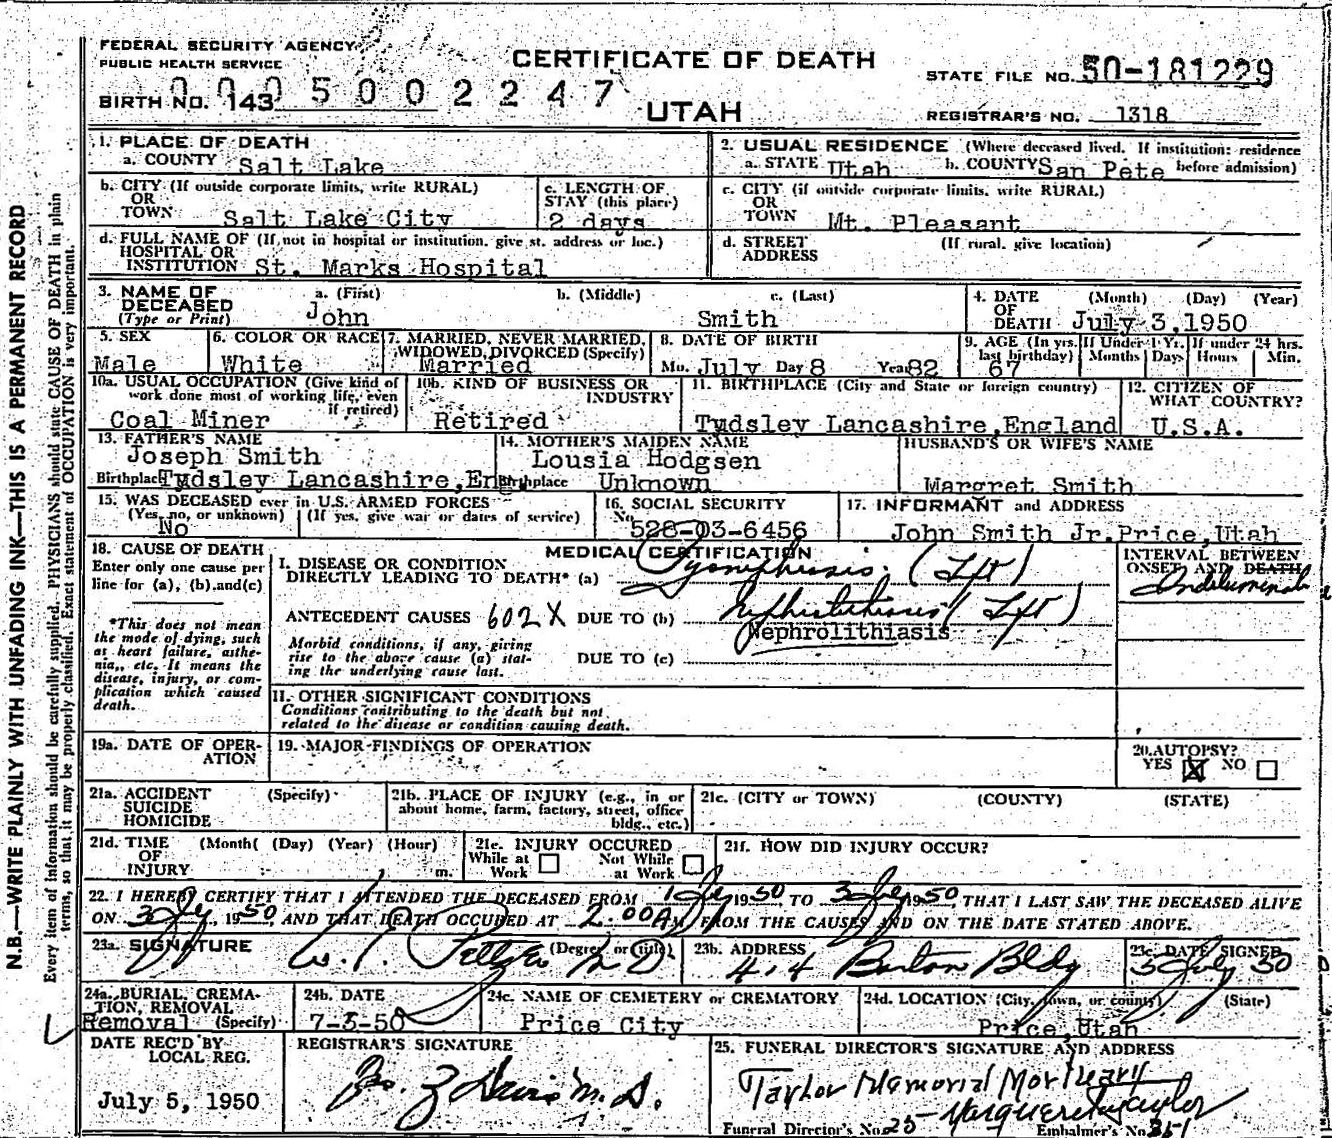 FEDERAL SECURITY AGENCY
PUBLIC HEALTH SERVICE
BIRTH NO. 143
0005002247
CERTIFICATE OF DEATH
UTAH
STATE FILE NO. 50-181229
REGISTRAR'S NO. 1318
N.B.—WRITE PLAINLY WITH UNFADING INK—THIS IS A PERMANENT RECORD
Every item of information should be carefully supplied. PHYSICIANS should state CAUSE OF DEATH in plain
terms, so that it may be properly classified. Exact statement of OCCUPATION is very important.
1. PLACE OF DEATH
a. COUNTY Salt Lake
2. USUAL RESIDENCE (Where deceased lived. If institution: residence
a. STATE Utah b. COUNTY San Pete before admission)
b. CITY (If outside corporate limits, write RURAL)
OR
TOWN Salt Lake City
c. LENGTH OF
STAY (this place)
2 days
c. CITY (if outside corporate limits. write RURAL)
OR
TOWN Mt. Pleasant
d. FULL NAME OF (If not in hospital or institution. give st. address or loc.)
HOSPITAL OR
INSTITUTION St. Marks Hospital
d. STREET (If rural. give location)
ADDRESS
3. NAME OF a. (First) b. (Middle) c. (Last)
DECEASED
(Type or Print) John Smith
4. DATE (Month) (Day) (Year)
OF
DEATH July 3,1950
5. SEX
Male
6. COLOR OR RACE
White
7. MARRIED, NEVER MARRIED,
WIDOWED, DIVORCED (Specify)
Married
8. DATE OF BIRTH
Mo. July Day 8 Year 82
9. AGE (In yrs. If Under 1 Yr. If under 24 hrs.
last birthday) Months Days Hours Min.
67
10a. USUAL OCCUPATION (Give kind of
work done most of working life, even
if retired)
Coal Miner
10b. KIND OF BUSINESS OR
INDUSTRY
Retired
11. BIRTHPLACE (City and State or foreign country)
Tydsley Lancashire,England
12. CITIZEN OF
WHAT COUNTRY?
U.S.A.
13. FATHER'S NAME
Joseph Smith
Birthplace Tydsley Lancashire,Eng.
14. MOTHER'S MAIDEN NAME
Lousia Hodgsen
Birthplace Unknown
HUSBAND'S OR WIFE'S NAME
Margret Smith
15. WAS DECEASED ever in U.S. ARMED FORCES
(Yes, no, or unknown) (If yes, give war or dates of service)
No
16. SOCIAL SECURITY
No. 528-03-6456
17. INFORMANT and ADDRESS
John Smith Jr. Price, Utah
18. CAUSE OF DEATH
Enter only one cause per
line for (a), (b), and (c)
*This does not mean
the mode of dying, such
as heart failure, asthe-
nia,, etc. It means the
disease, injury, or com-
plication which caused
death.
MEDICAL CERTIFICATION
I. DISEASE OR CONDITION
DIRECTLY LEADING TO DEATH* (a) Pyonephrosis. (Lft)
ANTECEDENT CAUSES 602X DUE TO (b) Nephrolithiasis (Lft)
Nephrolithiasis
Morbid conditions, if any, giving
rise to the above cause (a) stat-
ing the underlying cause last.
DUE TO (c)
INTERVAL BETWEEN
ONSET AND DEATH
II. OTHER SIGNIFICANT CONDITIONS
Conditions contributing to the death but not
related to the disease or condition causing death.
19a. DATE OF OPER-
ATION
19. MAJOR FINDINGS OF OPERATION
20. AUTOPSY?
YES X NO
21a. ACCIDENT (Specify)
SUICIDE
HOMICIDE
21b. PLACE OF INJURY (e.g., in or
about home, farm, factory, street, office
bldg., etc.)
21c. (CITY or TOWN) (COUNTY) (STATE)
21d. TIME (Month( (Day) (Year) (Hour)
OF
INJURY m.
21e. INJURY OCCURED
While at Not While
Work at Work
21f. HOW DID INJURY OCCUR?
22. I HEREBY CERTIFY THAT I ATTENDED THE DECEASED FROM 1 July 1950 TO 3 July 1950, THAT I LAST SAW THE DECEASED ALIVE
ON 3 July, 1950, AND THAT DEATH OCCURED AT 2:00A M., FROM THE CAUSES AND ON THE DATE STATED ABOVE.
23a. SIGNATURE (Degree or title)
M D
23b. ADDRESS
414 Boston Bldg
23c. DATE SIGNED
3 July 50
24a. BURIAL, CREMA-
TION, REMOVAL
Removal (Specify)
24b. DATE
7-5-50
24c. NAME OF CEMETERY or CREMATORY
Price City
24d. LOCATION (City, town, or county) (State)
Price, Utah
DATE REC'D BY
LOCAL REG.
July 5, 1950
REGISTRAR'S SIGNATURE
M.D.
25. FUNERAL DIRECTOR'S SIGNATURE AND ADDRESS
Taylor Memorial Mortuary
Marguereta Taylor
Funeral Director's No. 25 Embalmer's No. 351